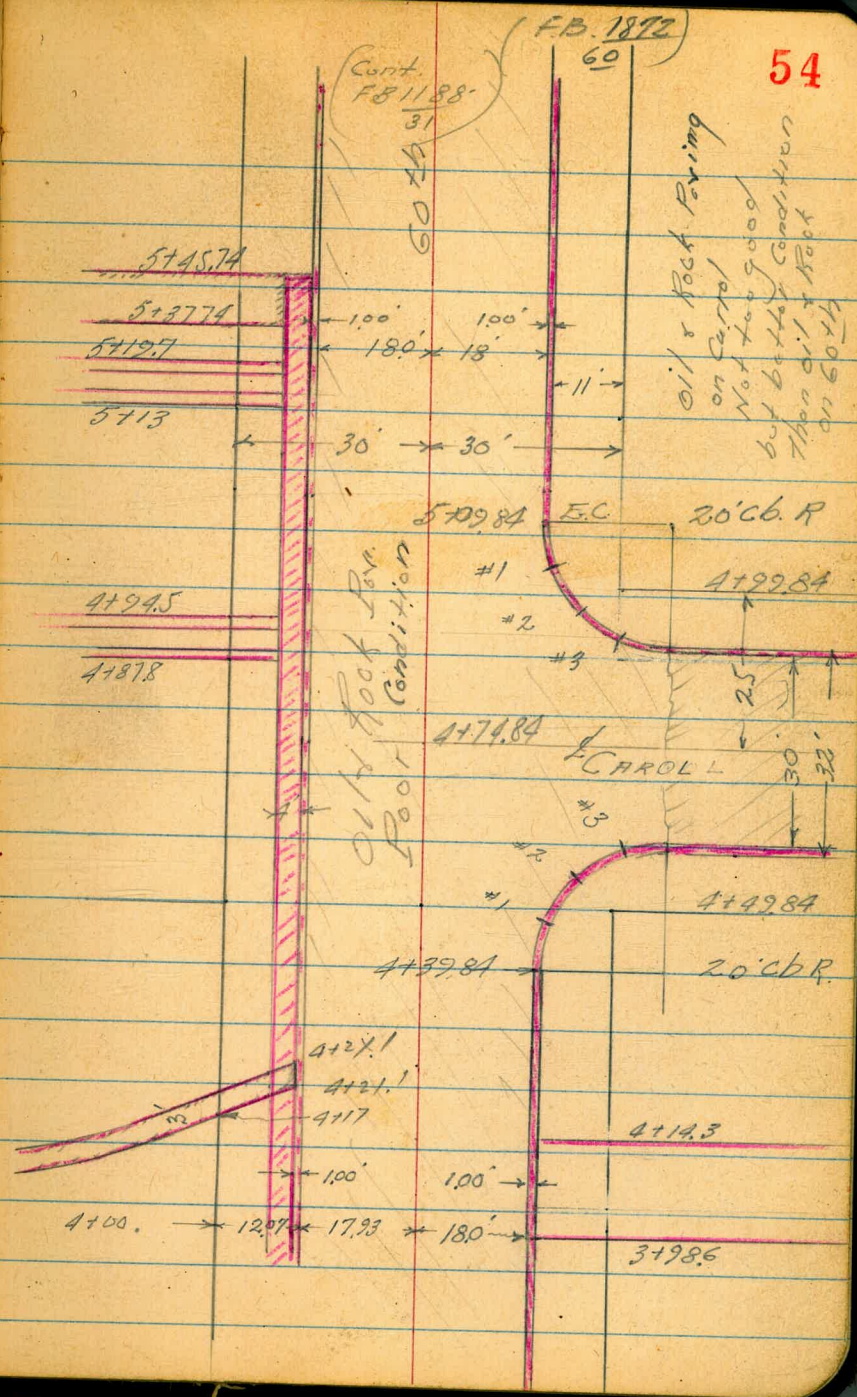 F.B. 1872
60
54
Cont.
FB 1188
31
60 th
Oil & Rock Paving
on Carrol
Not too good
but better Condition
than oil & Rock
on 60th
5+45.74
5+37.74
1.00'
1.00'
5+19.7
18.0'
18'
11'
5+13
30'
30'
5+09.84
E.C.
20' Cb. R
#1
4+99.84
4+94.5
#2
#3
4+87.8
25
Oil & Rock Pav.
Poor Condition
4+74.84
CAROLL
30'
32'
4
#3
#2
#1
4+49.84
4+39.84
20' Cb R.
4+21.1
4+17
3'
4+14.3
1.00'
1.00'
4+00.
12.07
17.93
18.0'
3+98.6